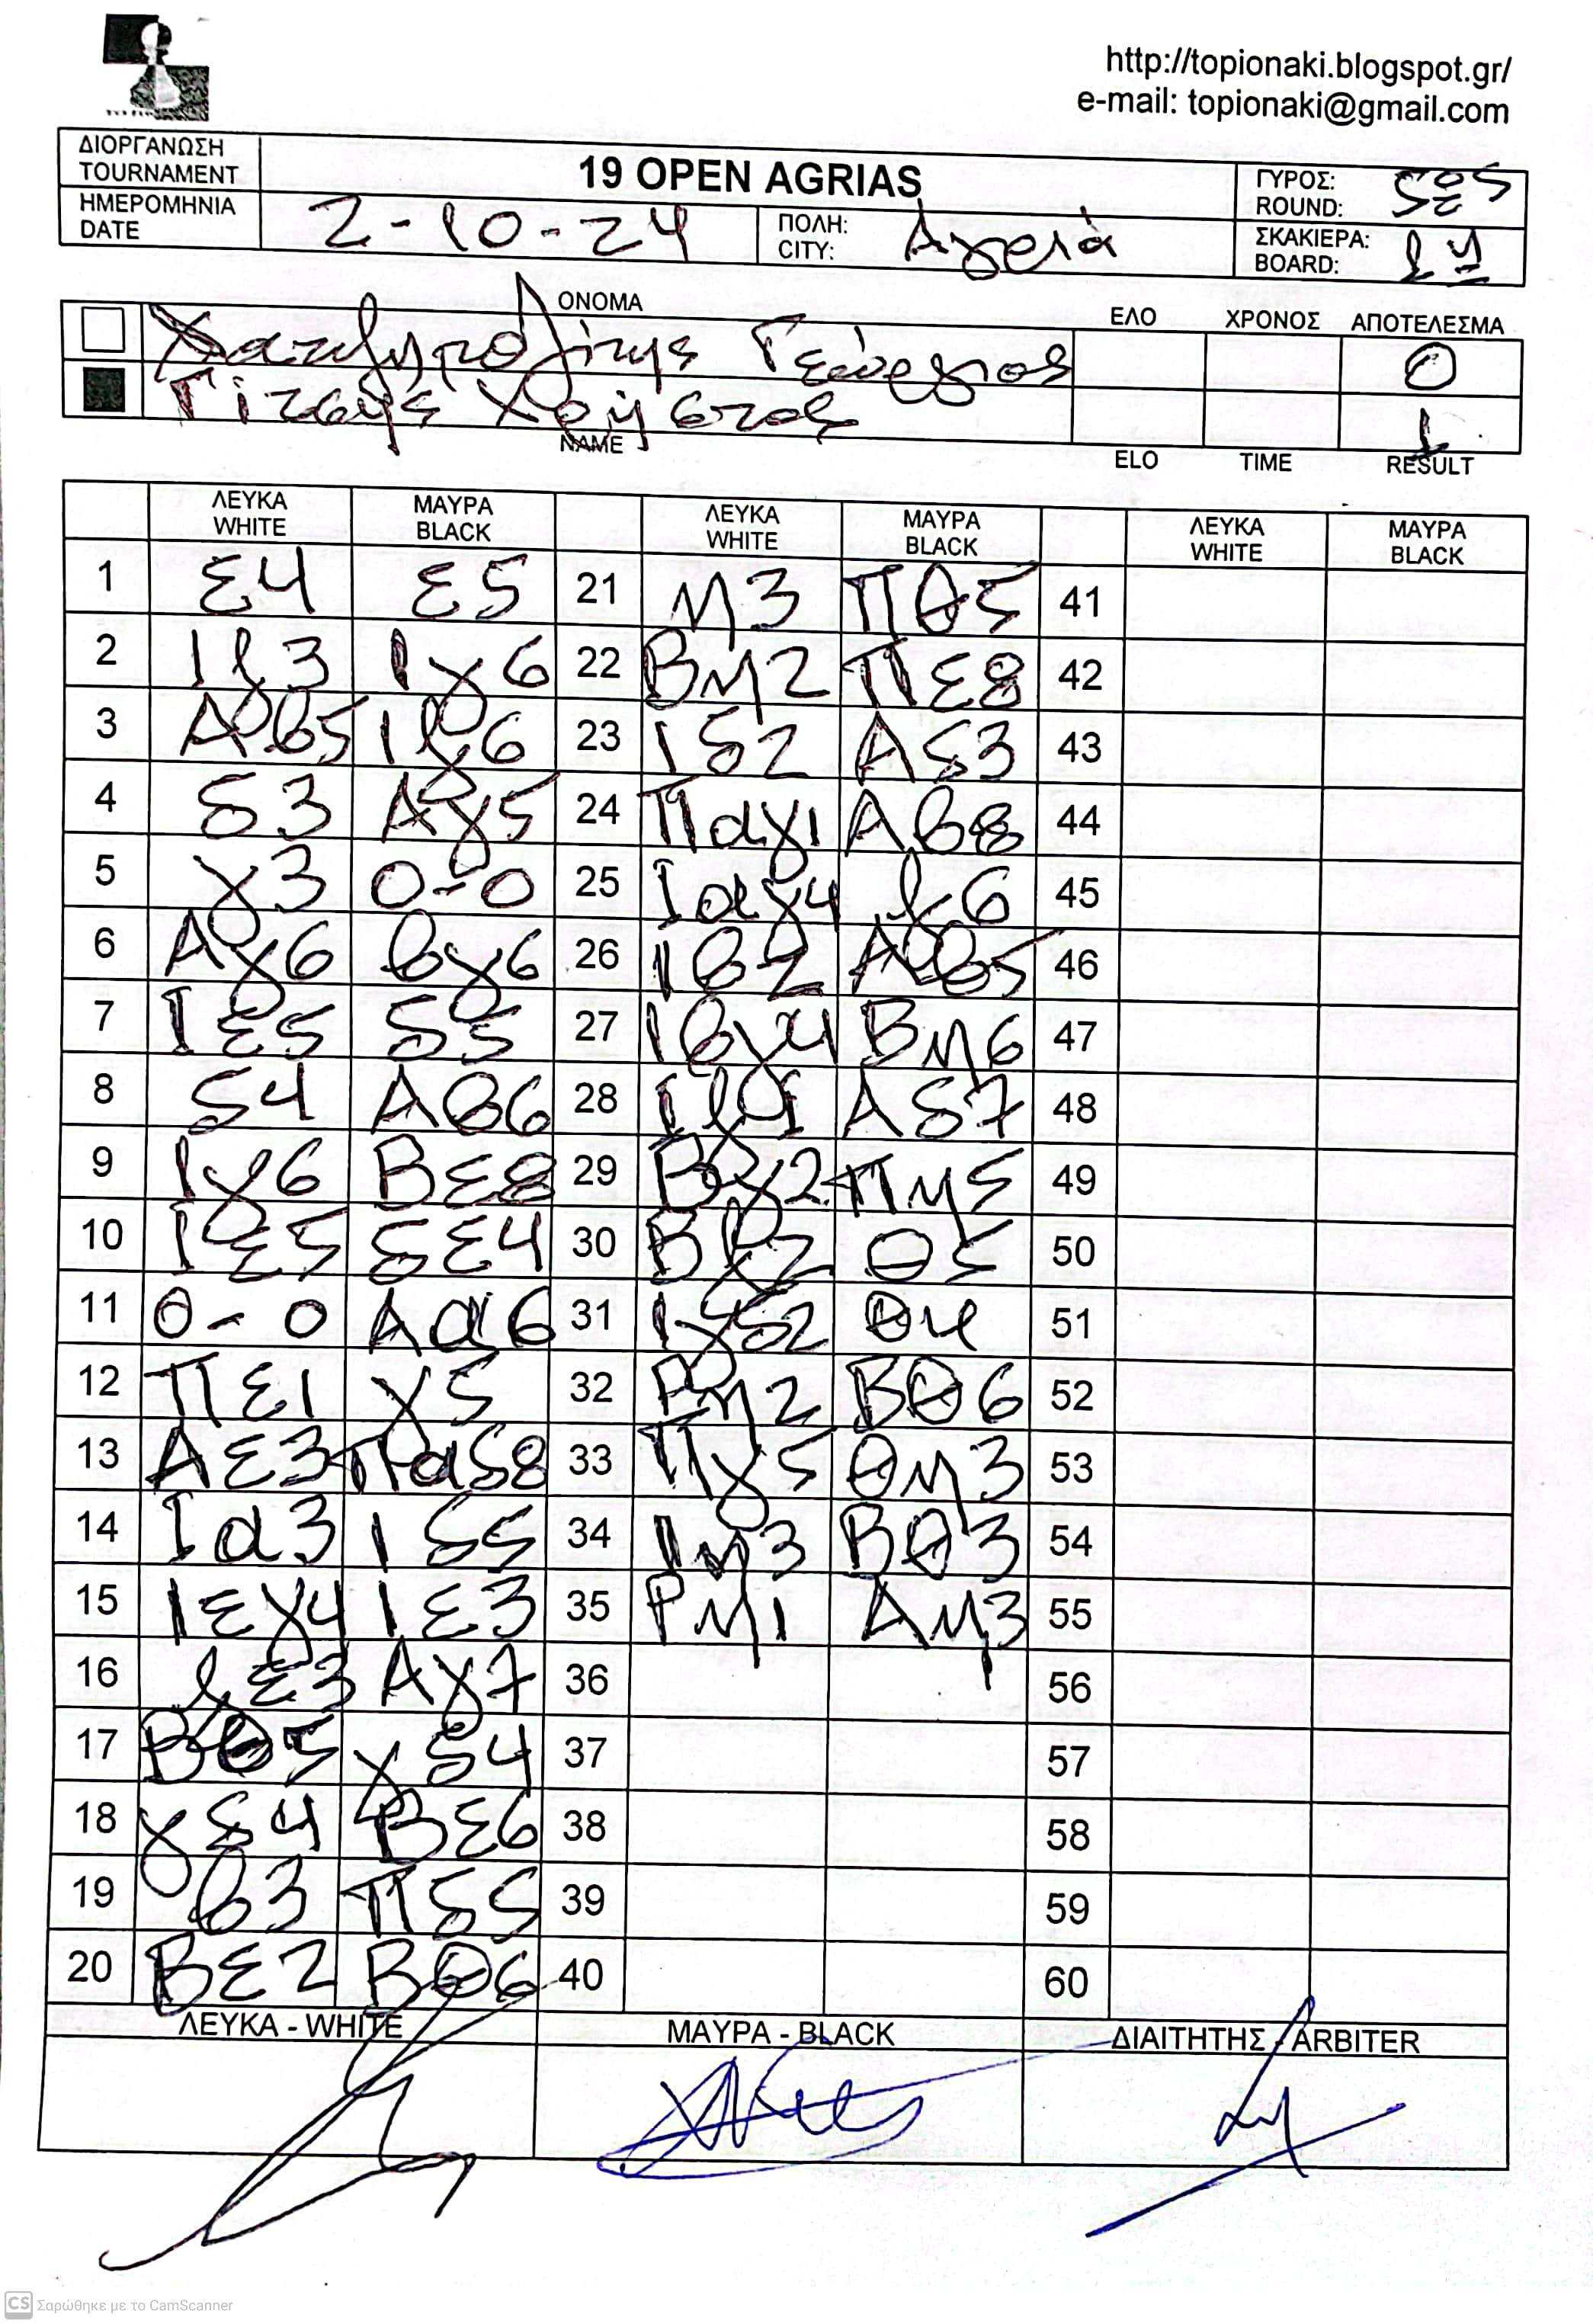 http://topionaki.blogspot.gr/
e-mail: topionaki@gmail.com
ΔΙΟΡΓΑΝΩΣΗ
TOURNAMENT
19 OPEN AGRIAS
ΓΥΡΟΣ:
ROUND: 5ος
ΗΜΕΡΟΜΗΝΙΑ
DATE
2-10-24
ΠΟΛΗ:
CITY:
Αγριά
ΣΚΑΚΙΕΡΑ:
BOARD:
ΟΝΟΜΑ ΕΛΟ ΧΡΟΝΟΣ ΑΠΟΤΕΛΕΣΜΑ
Γεώργιος 0
Χρήστος 1
NAME ELO TIME RESULT
ΛΕΥΚΑ ΜΑΥΡΑ ΛΕΥΚΑ ΜΑΥΡΑ ΛΕΥΚΑ ΜΑΥΡΑ
WHITE BLACK WHITE BLACK WHITE BLACK
1 ε4 ε5 21 η3 Πθ5 41
2 Ιζ3 Ιγ6 22 Βη2 ΠΕ8 42
3 Αβ5 Ιζ6 23 Ιδ2 Αδ3 43
4 δ3 Αγ5 24 Παγ1 Αβ8 44
5 γ3 0-0 25 Ιαγ4 ζ6 45
6 Αγ6 βγ6 26 Ιβ2 Αβ5 46
7 Ιε5 δ5 27 Ιβγ4 Βη6 47
8 δ4 Αβ6 28 Ιζ1 Αδ7 48
9 Ιγ6 Βε8 29 Βγ2 Πη5 49
10 Ιε5 δε4 30 Βζ2 θ5 50
11 0-0 Αα6 31 Ιγδ2 θ4 51
12 Πε1 γ5 32 Βη2 Βθ6 52
13 Αε3 Παδ8 33 Πγ5 θη3 53
14 Ια3 Ιδ5 34 Ιη3 Βθ3 54
15 Ιεγ4 Ιε3 35 Ρη1 Αη3 55
16 ζε3 Αγ7 36 56
17 Βθ5 γδ4 37 57
18 γδ4 Βε6 38 58
19 β3 Πδ5 39 59
20 Βε2 Βθ6 40 60
ΛΕΥΚΑ - WHITE ΜΑΥΡΑ - BLACK ΔΙΑΙΤΗΤΗΣ - ARBITER
CS Σαρώθηκε με το CamScanner